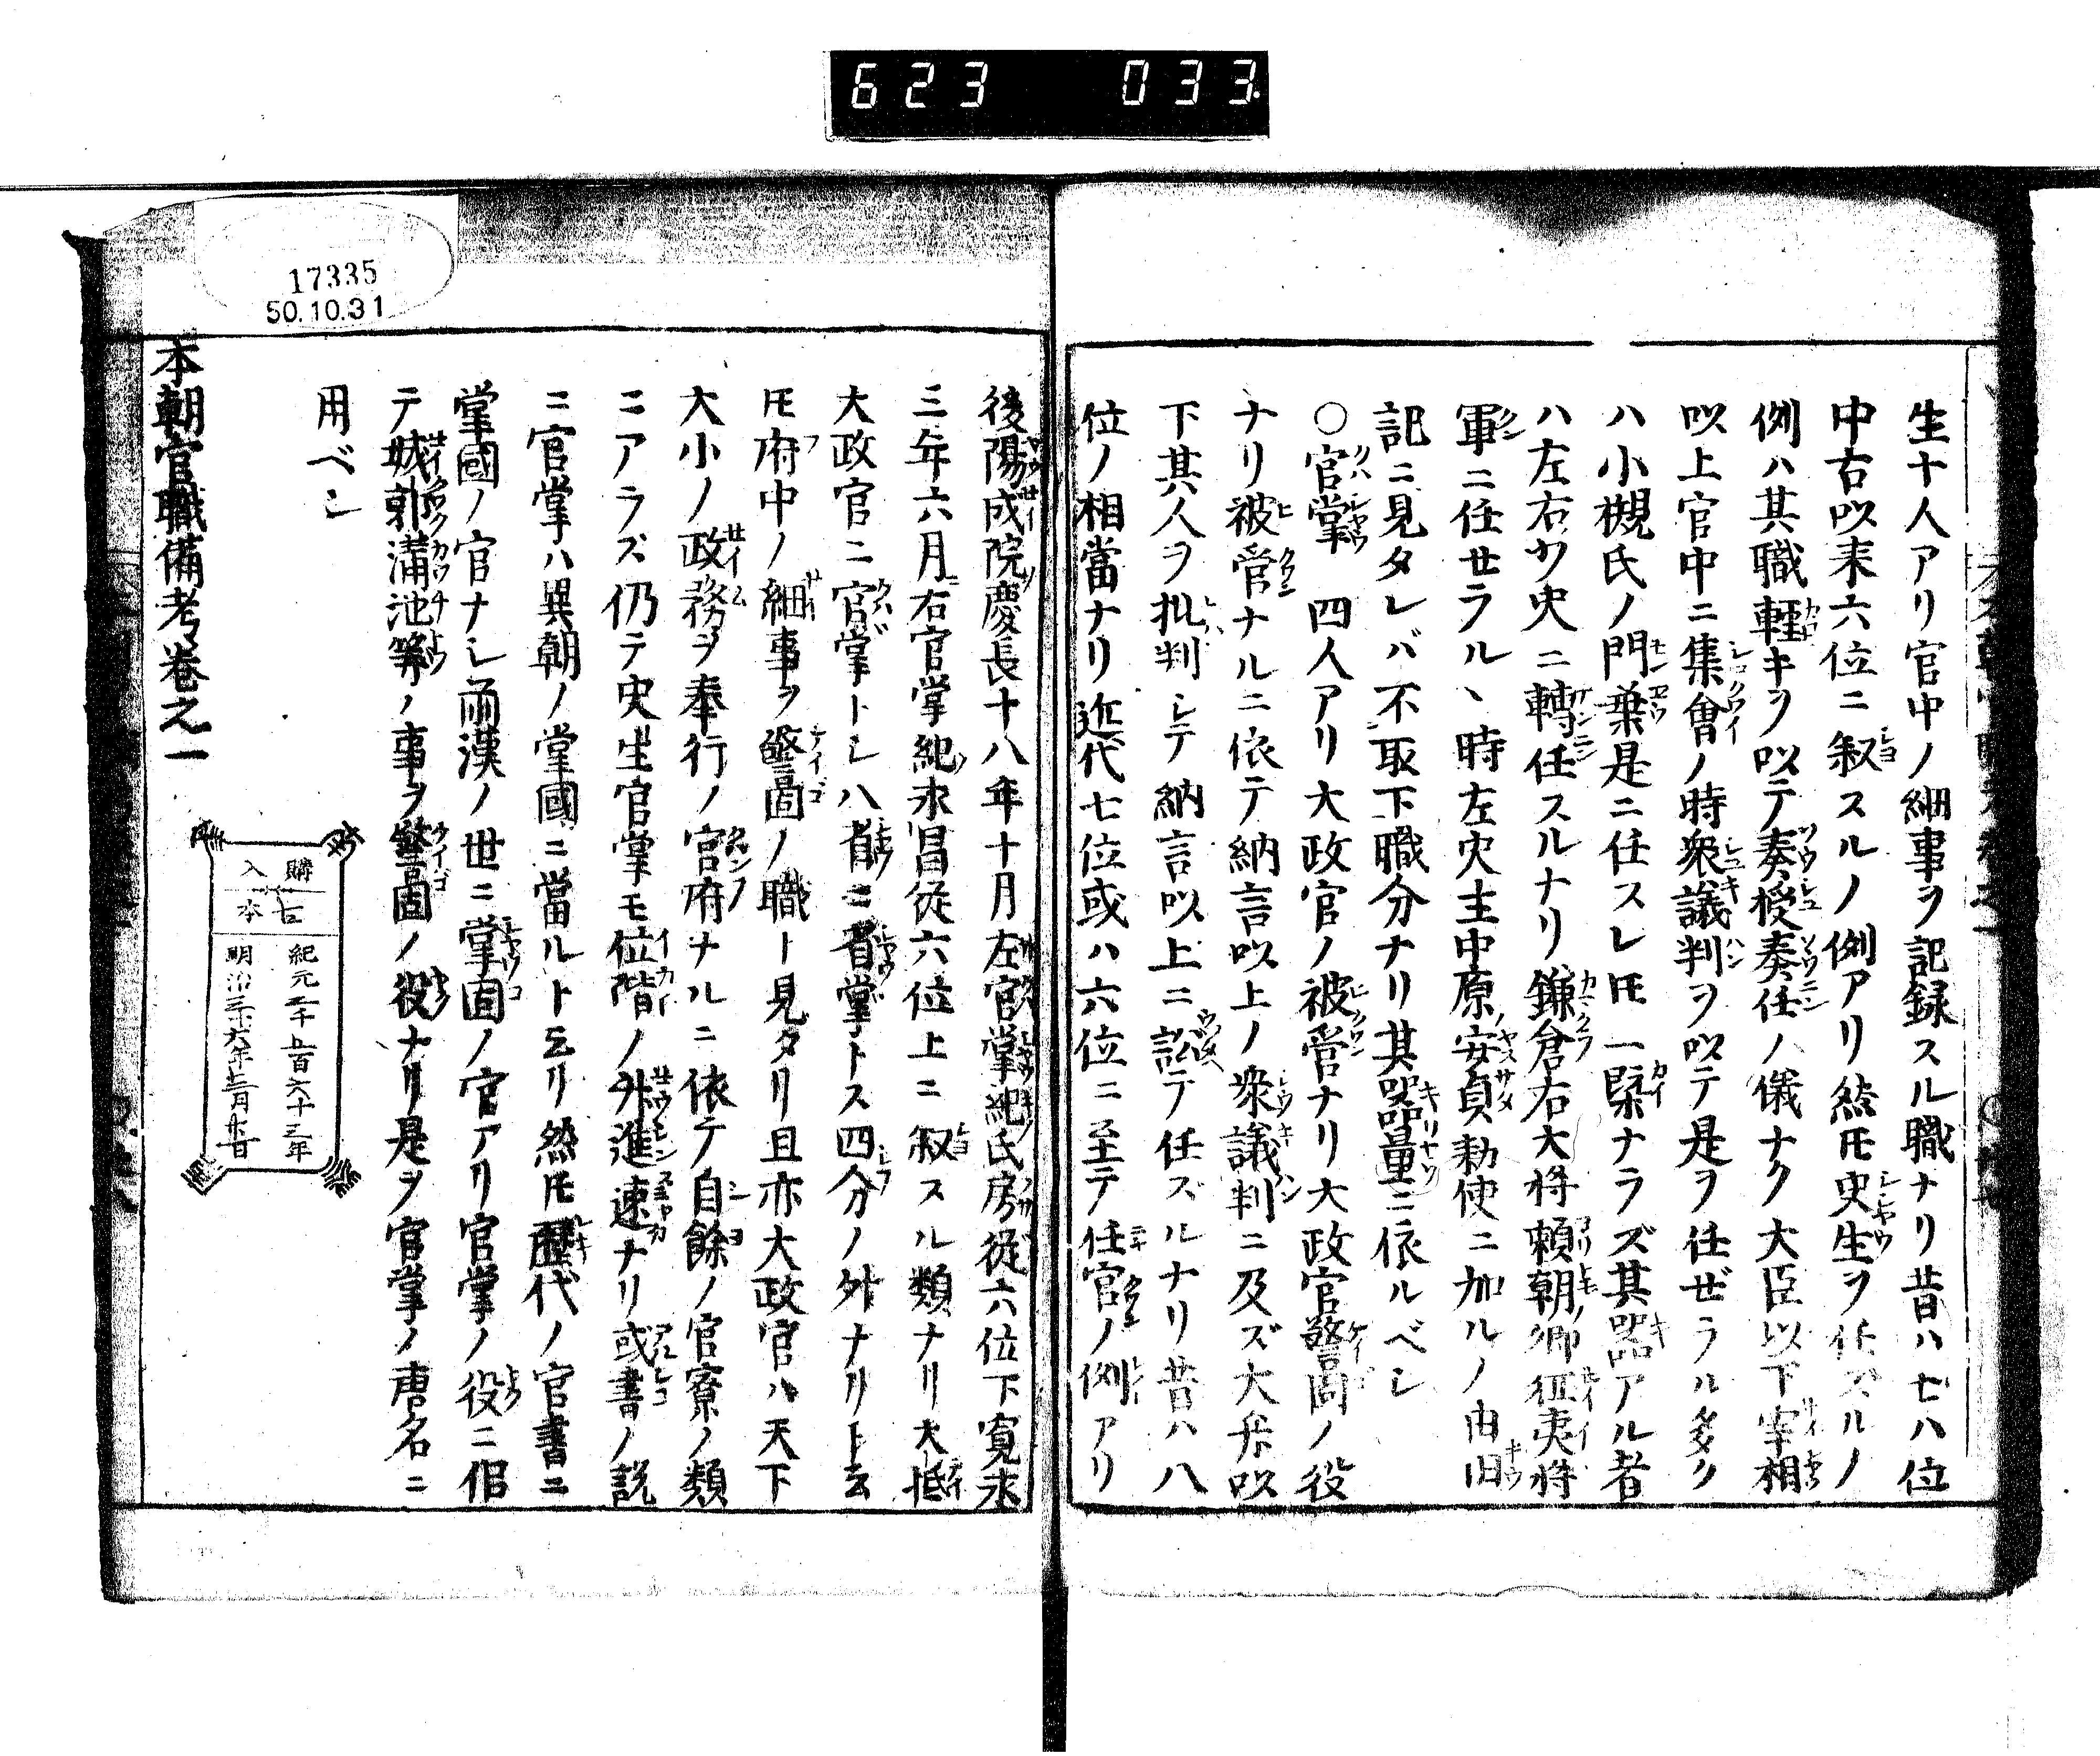 623 033
生十人アリ官中ノ細事ヲ記録スル職ナリ昔ハ七八位
中右以来六位ニ叙スルノ例アリ然𪜈史生ヲ任ズルノ
例ハ其職軽キヲ以テ奏授奏任ノ儀ナク大臣以下宰相
以上官中ニ集會ノ時衆議判ヲ以テ是ヲ任ゼラル多ク
ハ小槻氏ノ門葉是ニ任スレ𪜈一槩ナラズ其器アル者
ハ左右ノ史ニ轉任スルナリ鎌倉右大将頼朝卿征夷将
軍ニ任セラルヽ時左史主中原安貞勅使ニ加ルノ由旧
記ニ見タレバ不取下職分ナリ其器量ニ依ルベシ
○官掌 四人アリ大政官ノ被管ナリ大政官警固ノ役
ナリ被管ナルニ依テ納言以上ノ衆議判ニ及ズ大弁以
下其人ヲ批判シテ納言以上ニ訟テ任ズルナリ昔ハ八
位ノ相當ナリ近代七位或ハ六位ニ至テ任官ノ例アリ
後陽成院慶長十八年十月左官掌紀氏房従六位下寛永
三年六月右官掌紀永昌従六位上ニ叙スル類ナリ大抵
大政官ニ官掌トシハ省ニ省掌トス四分ノ外ナリト云
𪜈府中ノ細事ヲ警固ノ職ト見タリ且亦大政官ハ天下
大小ノ政務ヲ奉行ノ官府ナルニ依テ自餘ノ官寮ノ類
ニアラズ仍テ史生官掌モ位階ノ升進速ナリ或書ノ説
ニ官掌ハ異朝ノ掌國ニ當ルト云リ然𪜈歴代ノ官書ニ
掌國ノ官ナシ兩漢ノ世ニ掌固ノ官アリ官掌ノ役ニ佀
テ城郭溝池等ノ事ヲ警固ノ役ナリ是ヲ官掌ノ唐名ニ
用ベシ
本朝官職備考巻之一
17335
50.10.31
購入
本
紀元二千五百六十三年
明治三十六年